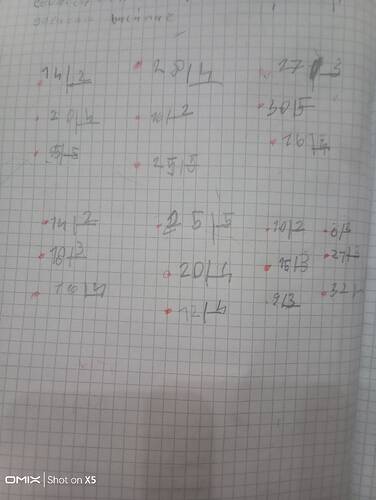 14|2
28|4
27|3
20|4
10|2
30|5
5|5
25|5
16|4
14|2
25|5
10|2
6|3
18|3
20|4
15|3
27|3
16|4
12|4
9|3
OMIX | Shot on X5